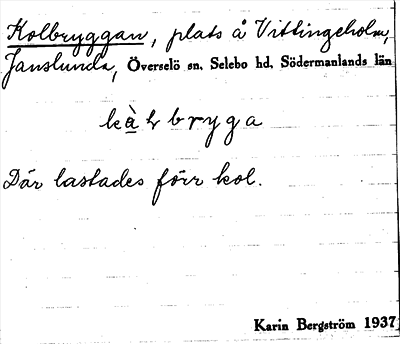 Kolbryggan, plats å Vittingeholm,
Janslunda, Överselö sn. Selebo hd, Södermanlands län
Där lastades förr kol.
Karin Bergström 1937